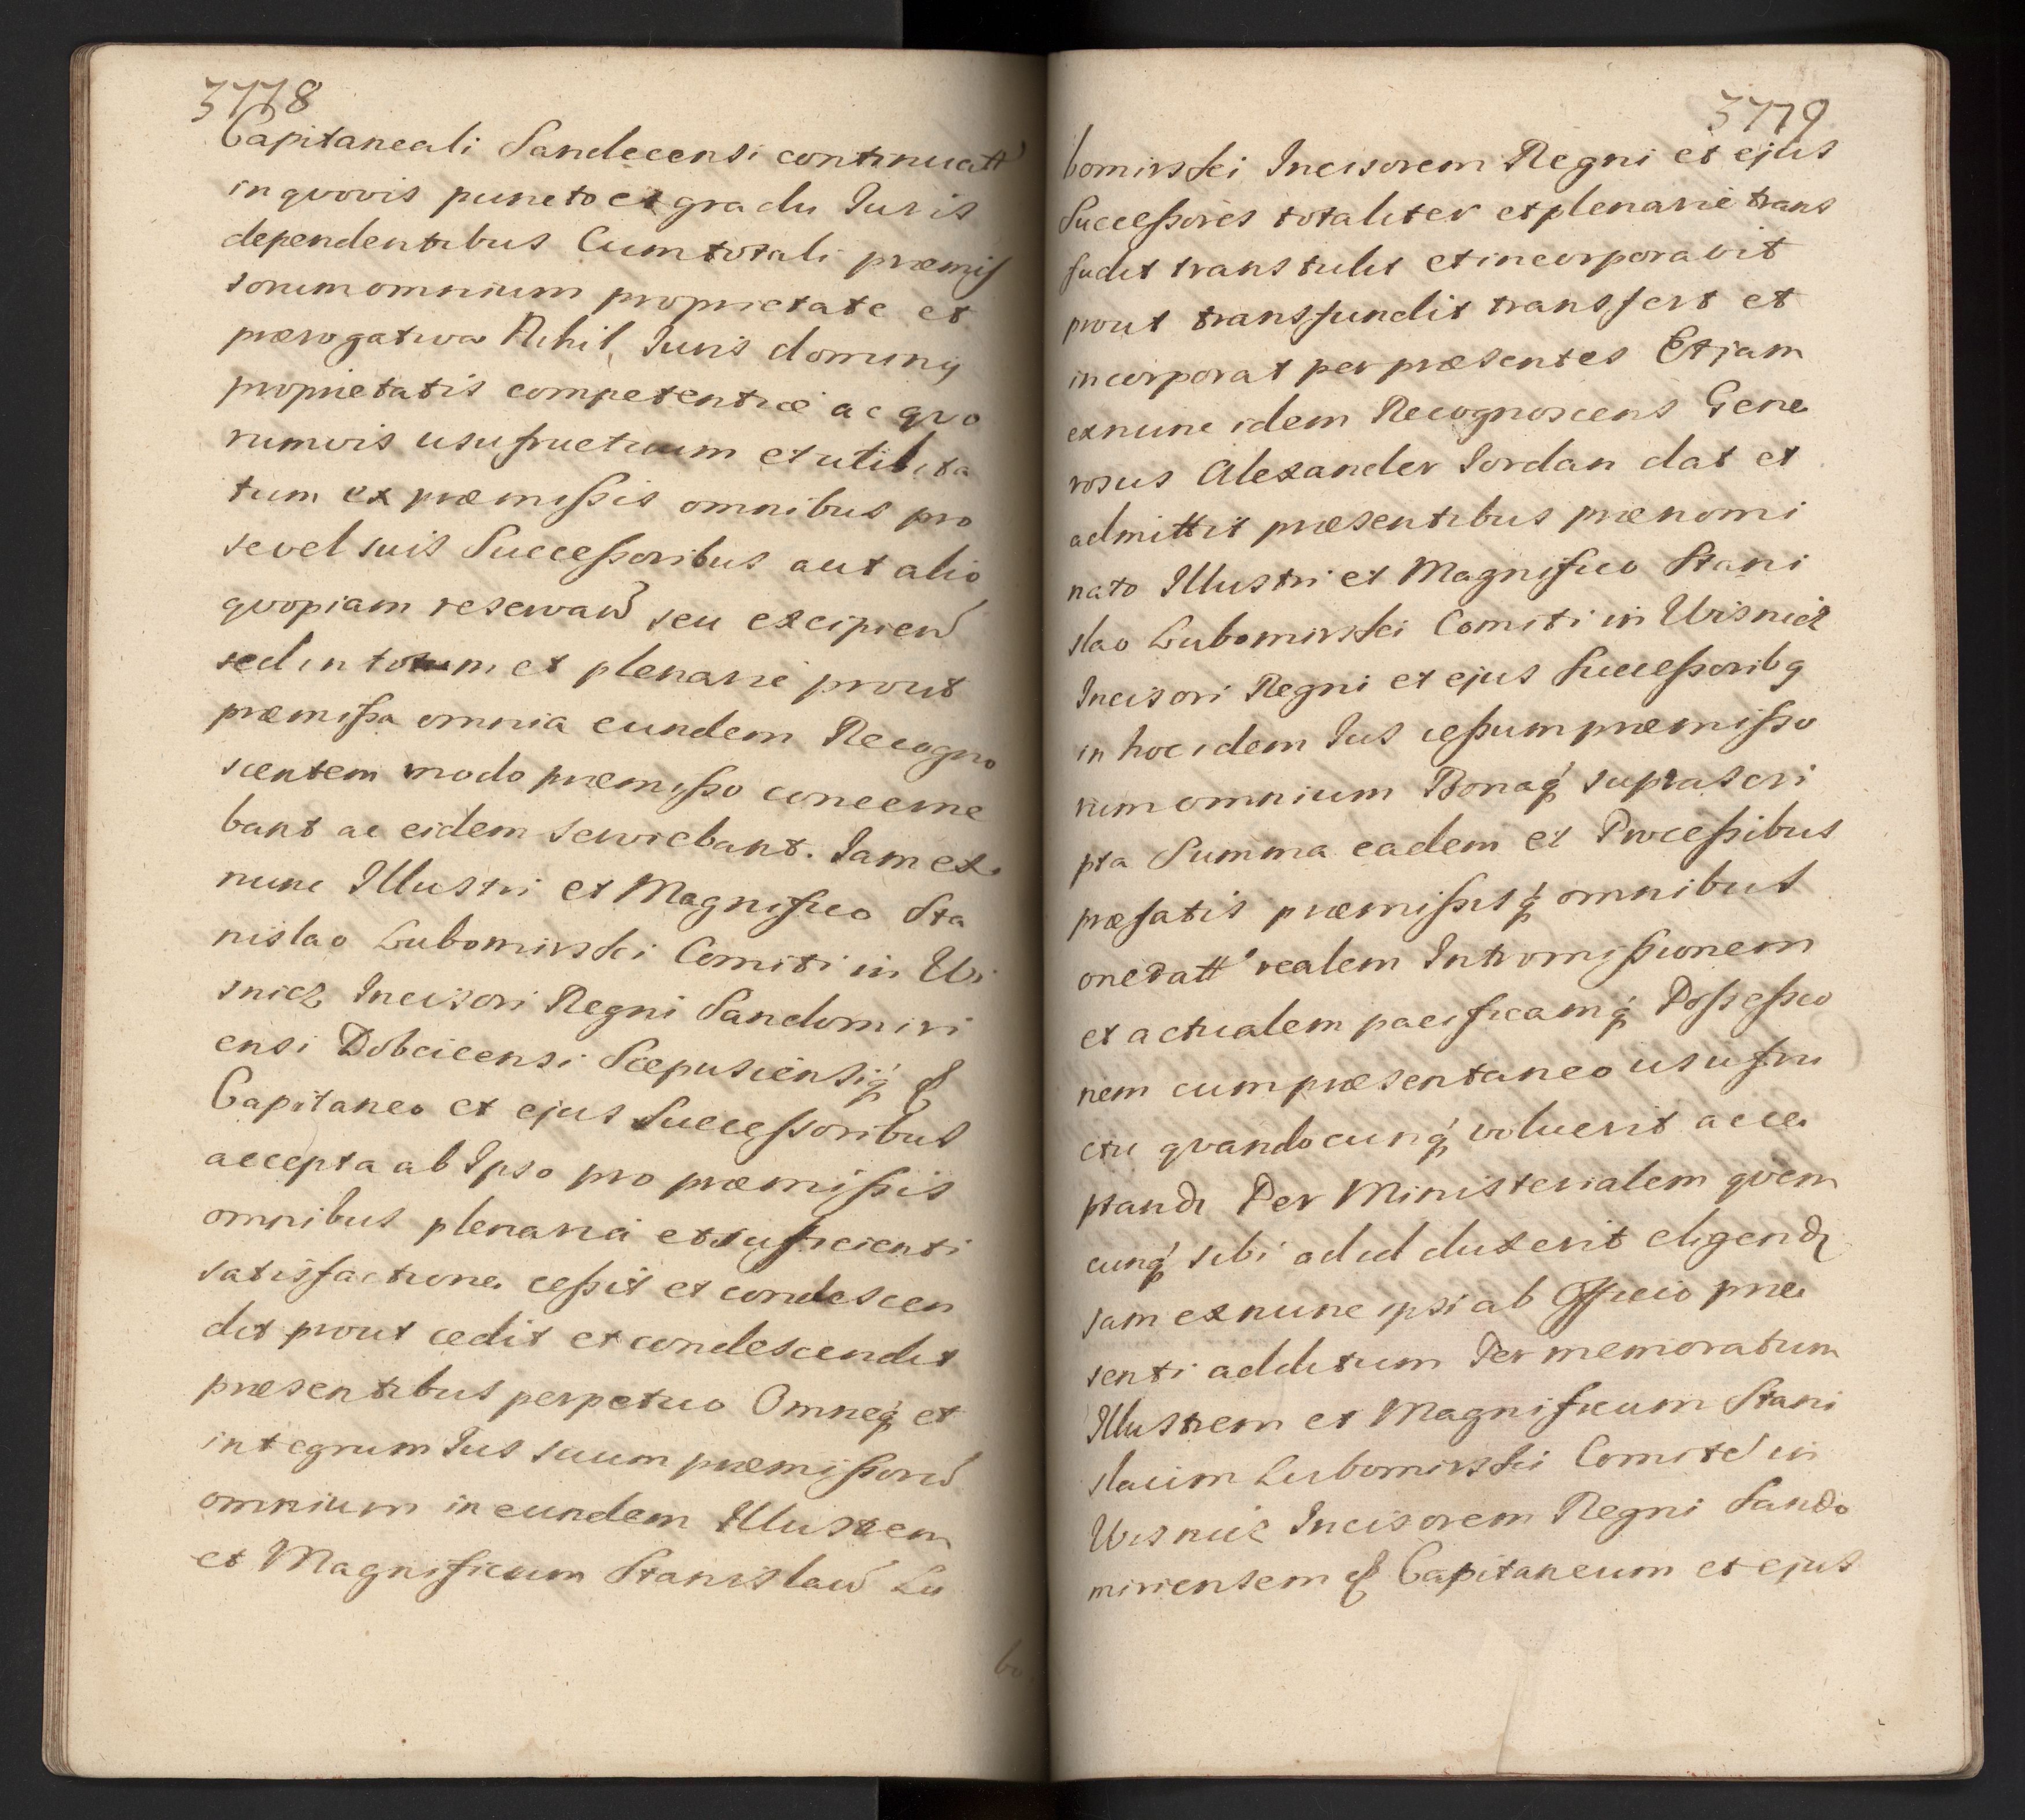 3778
Capitaneali Sandecensi continuatt
in qvovis puncto et gradu Juris
dependentibus Cum totali præmis
sorum omnium proprietate et
prærogativa Nihil Juris dominij
proprietatis competentiæ ac qvo
rumvis usufructuum et utilita
tum ex præmißis omnibus pro
se vel suis Succeßoribus aut alio
qvopiam reservan̄ seu excipien̄
sed in totum et plenarie prout
præmißa omnia eundem Recogno
scentem modo præmißo concerne
bant ac eidem serviebant. Jam ex
nunc Illustri et Magnifico Sta
nislao Lubomirski Comiti in Wi
snicz Incisori Regni Sandomiri
ensi Dobcicensi Scepusiensiq́ꝫ &
Capitaneo et ejus Succeßoribus
accepta ab Ipso pro præmißis
omnibus plenaria et sufficienti
satisfactione ceßit et condescen
dit prout cedit et condescendit
præsentibus perpetuo Omneq́ꝫ et
integrum Jus suum præmißorū
omnium in eundem Illustrem
et Magnificum Stanislaū Lu
bo
3779
bomirski Incisorem Regni et ejus
Succeßores totaliter et plenarie trans
fudit transtulit et incorporavit
prout transfundit transfert et
incorporat per præsentes Etjam
exnunc idem Recognoscens Gene
rosus Alexander Jordan dat et
admittit præsentibus prænomi
nato Illustri et Magnifico Stani
slao Lubomirski Comiti in Wisnicz
Incisori Regni et ejus Succeßoribꝫ
in hoc idem Jus ceßum præmißo
rum omnium Bonaq́ꝫ suprascri
pta Summa eadem et Proceßibus
præfatis præmißisq́ꝫ omnibus
oneratt realem Intromißionem
et actualem pacificamq́ꝫ Poßeßio
nem cum præsentaneo usufru
ctu qvandocunq́ꝫ voluerit acce
ptandꝫ Per Ministerialem qvem
cunq́ꝫ sibi ad id duxerit eligendꝫ
Jam exnunc ipsi ab Officio præ
senti additum Per memoratum
Illustrem et Magnificum Stani
slaum Lubomirski Comitē in
Wisnicz Incisorem Regni Sando
miriensem & Capitaneum et ejus